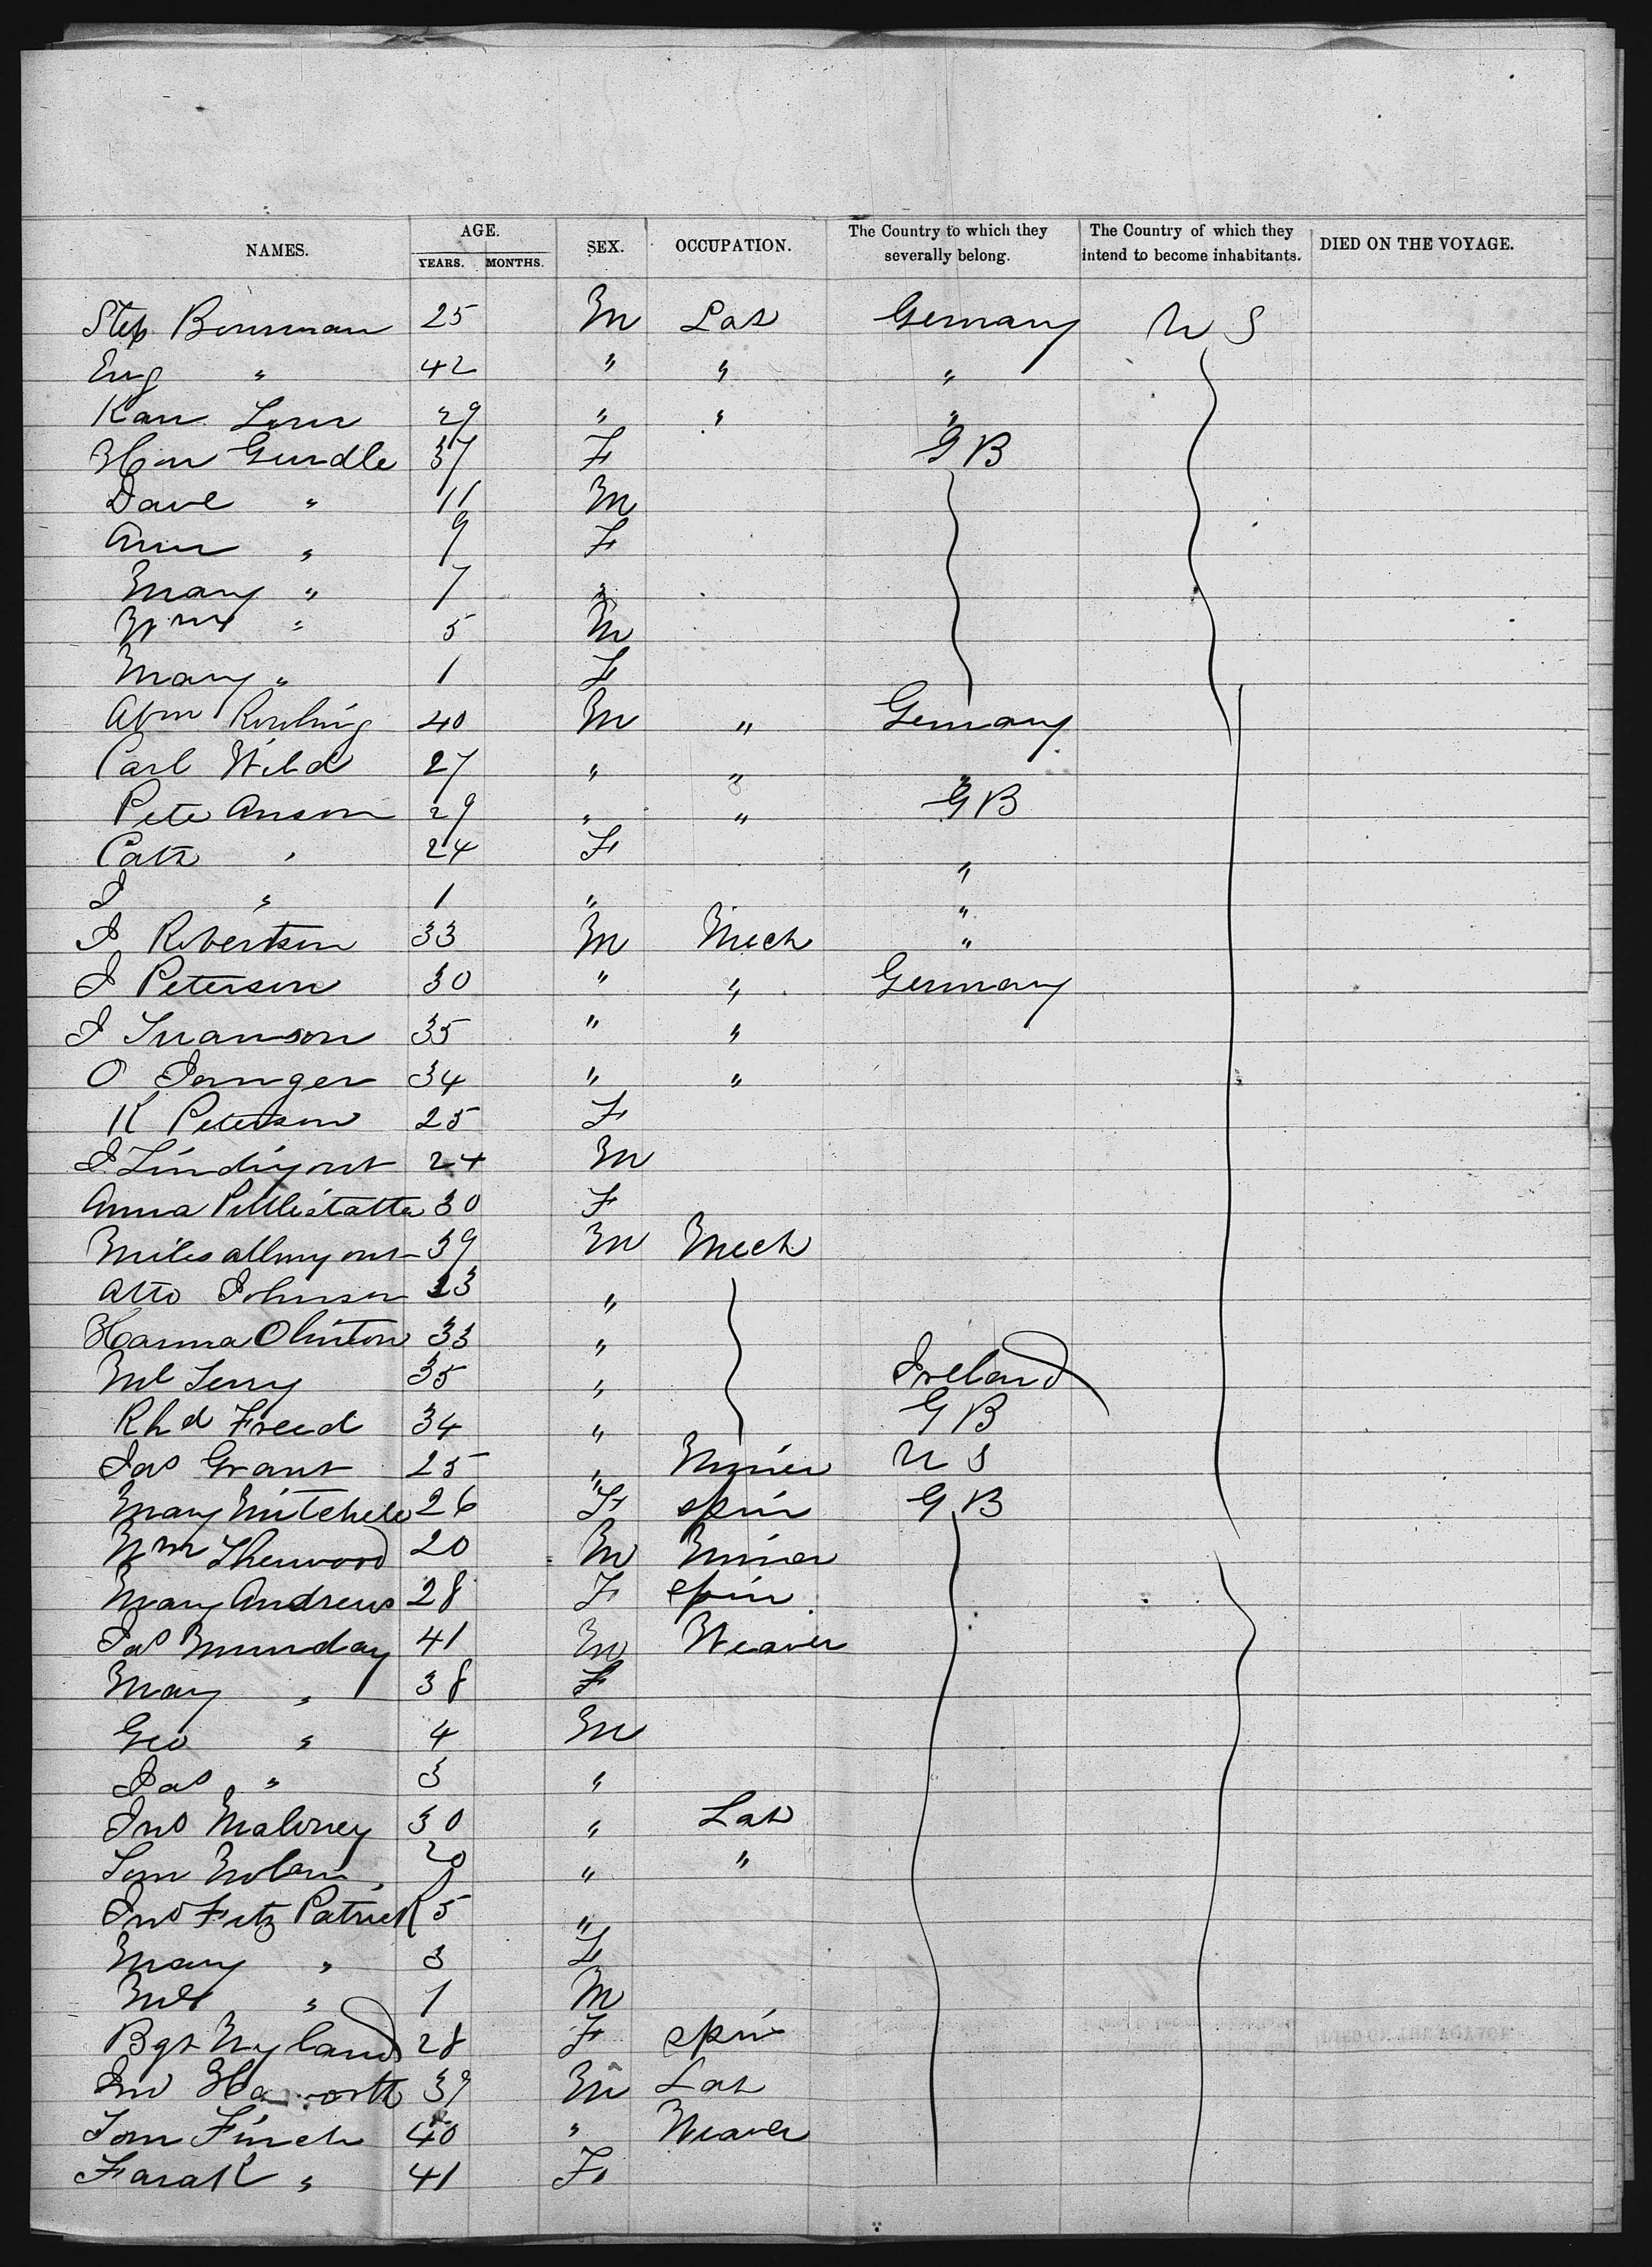 NAMES. AGE. SEX. OCCUPATION. The Country to which they severally belong. The Country of which they intend to become inhabitants. DIED ON THE VOYAGE.
YEARS. MONTHS.
Step Bowman 25 M Lab Germany U S
Eug " 42 " " "
Karr 29 " " "
Gundle 37 F G B
Dave " 11 M
Ann " 9 F
Mary " 7 "
Wm " 5 M
Mary " 1 F
Abm Rowling 40 M " Germany
Carl Wild 27 " " "
Pete Anson 29 " " G B
Cath " 24 F "
J " 1 " "
J Robertson 33 M Mech "
J Peterson 30 " " Germany
J Swanson 35 " "
O 34 " "
K Peterson 25 F
J 24 M
Anna 30 F
Miles 39 M Mech
Otto Johnson 23 "
Hanna 33 "
Ml Terry 35 " Ireland
Rhd Freed 34 " G B
Jas Grant 25 " Miner U S
Mary Mitchell 26 F spin G B
Wm Sherwood 20 M Miner
Mary Andrews 28 F spin
Jas Munday 41 M Weaver
Mary " 38 F
Geo " 4 M
Jas " 3 "
Jno Maloney 30 " Lab
Tom Nolan 20 " "
Jno Fitz Patrick 5 "
Mary " 3 F
Ml " 1 M
Bgt Nyland 28 F spin
Jno Haworth 39 M Lab
Tom Finch 40 " Weaver
Sarah " 41 F